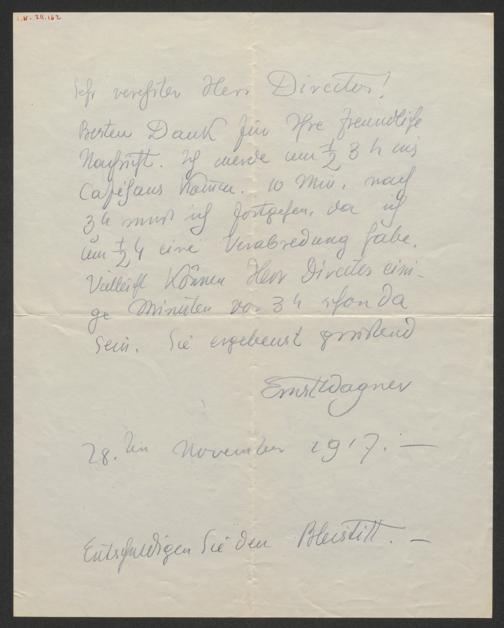 I.N. 211.162
Sehr verehrter Herr Director!
Besten Dank für Ihre freundliche
Nachricht. Ich werde um ½ 3 h ins
Caféhaus kommen. 10 Min. nach
3 h muss ich fortgehen, da ich
um ½ 4 eine Verabredung habe.
Vielleicht können Herr Director eini-
ge Minuten vor 3 h schon da
sein. Sie ergebenst grüssend
Ernst Wagner
28. ten November 1917. —
Entschuldigen Sie den Bleistift. —